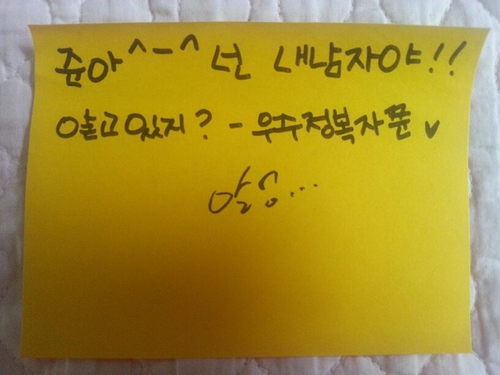 쥰아^-^ 넌 내남자야!!
알고있지? - 우주정복자쭌♥
알엄...